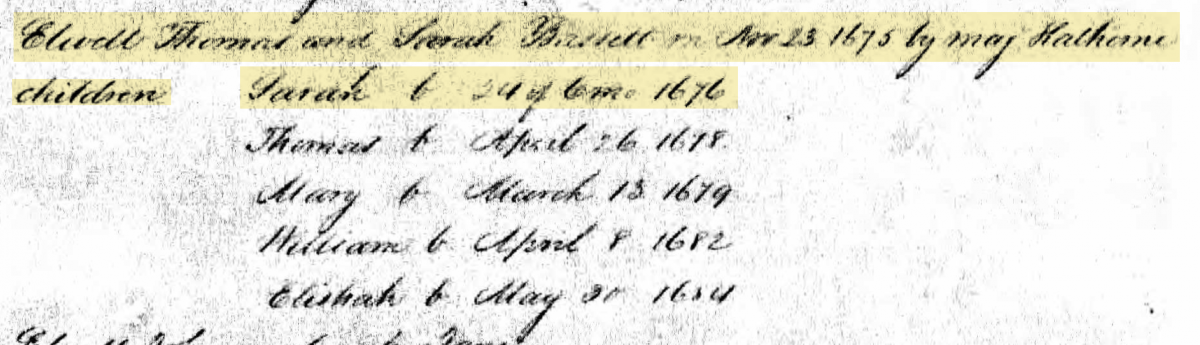 Elwell Thomas and Sarah Bassett m Nov 23 1675 by maj Hathorne
children Sarah b 24 of 6 mo 1676
Thomas b April 26 1678
Mary b March 13 1679
William b April 8 1682
Elishah b May 30 1684